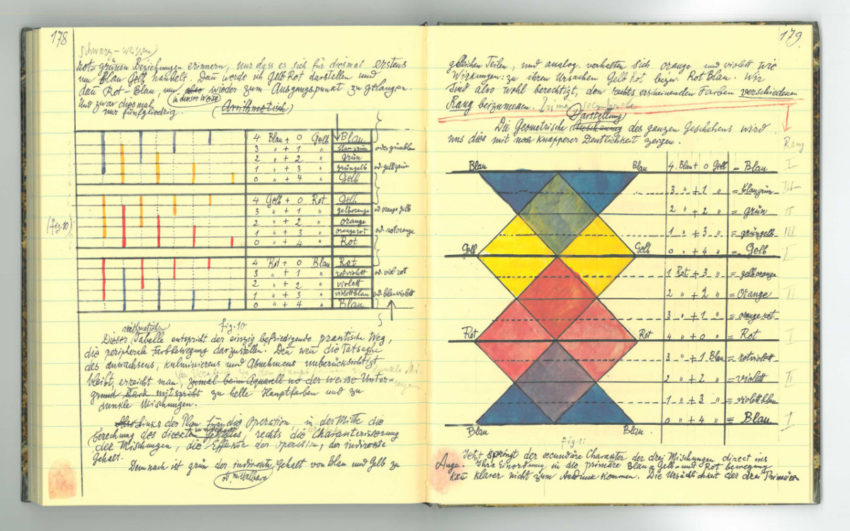 178
schwarz-weissen
rot-grünen Beziehungen erinnern, nur dass es sich für dreimal erstens
um Blau Gelb handelt. Dann werde ich Gelb Rot darstellen und
dan Rot-Blau, um wieder zum Ausgangspunkt zu gelangen.
in dieser Weise
Und zwar diesmal (Arithmetisch)
nur fünfgliedrig
4 Blau + 0 Gelb Blau
3 " + 1 " blaugrün oder grünblau
2 " + 2 " grün
1 " + 3 " grüngelb od gelbgrün
0 " + 4 " Gelb
(fig 10)
4 Gelb + 0 Rot Gelb
3 " + 1 " gelborange od orangegelb
2 " + 2 " orange
1 " + 3 " orangerot od rotorange
0 " + 4 " Rot
4 Rot + 0 Blau Rot
3 " + 1 " rotviolett od viol rot
2 " + 2 " violett
1 " + 3 " violettblau od blauviolett
0 " + 4 " Blau
fig. 10
Diese Tabelle entspricht der einzig befriedigende practische Weg,
die peripherale Farbbewegung darzustellen. Den wen die Tatsache
des Anwachsens, kulminierens und Abnehmens unberücksichtigt
bleibt, erreicht man, zumal beim Aquarell wo der weisse Unter-
grund stark mitspricht zu helle Hauptfarben und zu
dunkle Mischungen.
Links der Plan für die Operation, in der Mitte die
Berechnung des directen Gehaltes rechts die Characterisierung
der Mischungen, die Effecte der Operation, der indirecte
Gehalt.
Demnach ist grün der indirecte Gehalt von Blau und Gelb zu
179
gleichen Teilen, und analog verhalten sich orange und violett wie
Wirkungen zu ihren Ursachen Gelb Rot bezw. Rot Blau. Wir
sind also wohl berechtigt, den rechts erscheinenden Farben verschiedenen
Rang beizumessen.
Darstellung
Die Geometrische des ganzen Geschehens wird
uns dies mit knapperer Deutlichkeit zeigen.
Rang
Blau Blau 4 Blau + 0 Gelb = Blau I
3 " + 1 " = blaugrün
2 " + 2 " = grün II
1 " + 3 " = grüngelb III
Gelb Gelb 0 " + 4 " = Gelb I
1 Rot + 3 " = gelborange
2 " + 2 " = Orange II
3 " + 1 " = orangerot
Rot Rot 4 " + 0 " = Rot I
3 " + 1 Blau = rotviolett
2 " + 2 " = violett II
1 " + 3 " = violettblau
Blau Blau 0 " + 4 " = Blau I
Fig. 11
Jetzt springt der secundäre Character der drei Mischungen direct ins
Auge. Ihre Einordnung in die primäre Blau Gelb und Rot bewegung
kan klarer nicht zum Ausdruck kommen. Die Ursächlichkeit der drei Primären